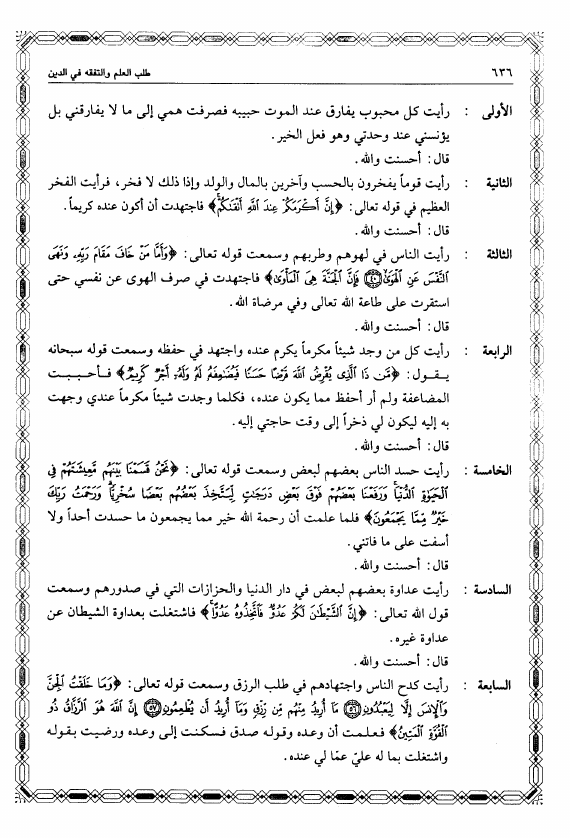 ٦٣٦ طلب العلم والتفقه في الدين
الأولى : رأيت كل محبوب يفارق عند الموت حبيبه فصرفت همي إلى ما لا يفارقني بل
يؤنسني عند وحدتي وهو فعل الخير.
قال: أحسنت والله.
الثانية : رأيت قوماً يفخرون بالحسب وآخرين بالمال والولد وإذا ذلك لا فخر، فرأيت الفخر
العظيم في قوله تعالى: ﴿إِنَّ أَكْرَمَكُمْ عِندَ اللَّهِ أَتْقَىٰكُمْ﴾ فاجتهدت أن أكون عنده كريماً.
قال: أحسنت والله.
الثالثة : رأيت الناس في لهوهم وطربهم وسمعت قوله تعالى: ﴿وَأَمَّا مَنْ خَافَ مَقَامَ رَبِّهِۦ وَنَهَى
النَّفْسَ عَنِ الْهَوَىٰ ٤٠ فَإِنَّ الْجَنَّةَ هِىَ الْمَأْوَىٰ﴾ فاجتهدت في صرف الهوى عن نفسي حتى
استقرت على طاعة الله تعالى وفي مرضاة الله.
قال: أحسنت والله.
الرابعة : رأيت كل من وجد شيئاً مكرماً يكرم عنده واجتهد في حفظه وسمعت قوله سبحانه
يقول: ﴿مَّن ذَا الَّذِى يُقْرِضُ اللَّهَ قَرْضًا حَسَنًا فَيُضَٰعِفَهُۥ لَهُۥ وَلَهُۥٓ أَجْرٌ كَرِيمٌ﴾ فأحببت
المضاعفة ولم أر أحفظ مما يكون عنده، فكلما وجدت شيئاً مكرماً عندي وجهت
به إليه ليكون لي ذخراً إلى وقت حاجتي إليه.
قال: أحسنت والله.
الخامسة : رأيت حسد الناس بعضهم لبعض وسمعت قوله تعالى: ﴿نَحْنُ قَسَمْنَا بَيْنَهُم مَّعِيشَتَهُمْ فِى
الْحَيَوٰةِ الدُّنْيَا وَرَفَعْنَا بَعْضَهُمْ فَوْقَ بَعْضٍ دَرَجَٰتٍ لِّيَتَّخِذَ بَعْضُهُم بَعْضًا سُخْرِيًّا وَرَحْمَتُ رَبِّكَ
خَيْرٌ مِّمَّا يَجْمَعُونَ﴾ فلما علمت أن رحمة الله خير مما يجمعون ما حسدت أحداً ولا
أسفت على ما فاتني.
قال: أحسنت والله.
السادسة : رأيت عداوة بعضهم لبعض في دار الدنيا والحزازات التي في صدورهم وسمعت
قول الله تعالى: ﴿إِنَّ الشَّيْطَٰنَ لَكُمْ عَدُوٌّ فَاتَّخِذُوهُ عَدُوًّا﴾ فاشتغلت بعداوة الشيطان عن
عداوة غيره.
قال: أحسنت والله.
السابعة : رأيت كدح الناس واجتهادهم في طلب الرزق وسمعت قوله تعالى: ﴿وَمَا خَلَقْتُ الْجِنَّ
وَالْإِنسَ إِلَّا لِيَعْبُدُونِ ٥٦ مَآ أُرِيدُ مِنْهُم مِّن رِّزْقٍ وَمَآ أُرِيدُ أَن يُطْعِمُونِ ٥٧ إِنَّ اللَّهَ هُوَ الرَّزَّاقُ ذُو
الْقُوَّةِ الْمَتِينُ﴾ فعلمت أن وعده وقوله صدق فسكنت إلى وعده ورضيت بقوله
واشتغلت بما له عليّ عمّا لي عنده.